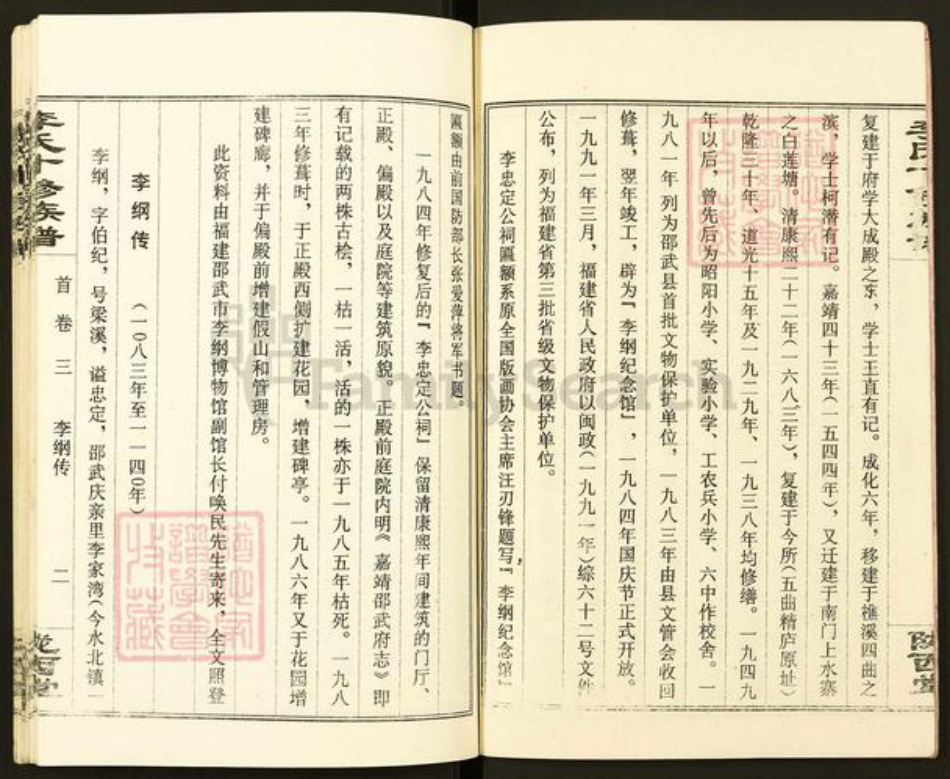 复建于府学大成殿之东，学士王直有记。成化六年，移建于樵溪四曲之
滨，学士柯潜有记。嘉靖四十三年（一五四四年），又迁建于南门上水寨
之白莲塘。清康熙二十二年（一六八三年），复建于今所（五曲精庐原址）
乾隆三十年、道光十五年及一九二九年、一九三八年均修缮。一九四九
年以后，曾先后为昭阳小学、实验小学、工农兵小学、六中作校舍。一
九八一年列为邵武县首批文物保护单位，一九八三年由县文管会收回
修葺，翌年竣工，辟为“李纲纪念馆”，一九八四年国庆节正式开放。
一九九一年三月，福建省人民政府以闽政（一九九一年）综六十二号文件
公布，列为福建省第三批省级文物保护单位。
李忠定公祠匾额系原全国版画协会主席汪刃锋题写，“李纲纪念馆”
匾额由前国防部长张爱萍将军书题。
一九八四年修复后的“李忠定公祠”保留清康熙年间建筑的门厅、
正殿、偏殿以及庭院等建筑原貌。正殿前庭院内明《嘉靖邵武府志》即
有记载的两株古桧，一枯一活，活的一株亦于一九八五年枯死。一九八
三年修葺时，于正殿西侧扩建花园，增建碑亭。一九八六年又于花园增
建碑廊，并于偏殿前增建假山和管理房。
此资料由福建邵武市李纲博物馆副馆长付唤民先生寄来，全文照登
李纲传 （一〇八三年至一一四〇年）
李纲，字伯纪，号梁溪，谥忠定，邵武庆亲里李家湾（今水北镇
李氏十修族谱 首卷三 李纲传 二
陇西堂
FamilySearch